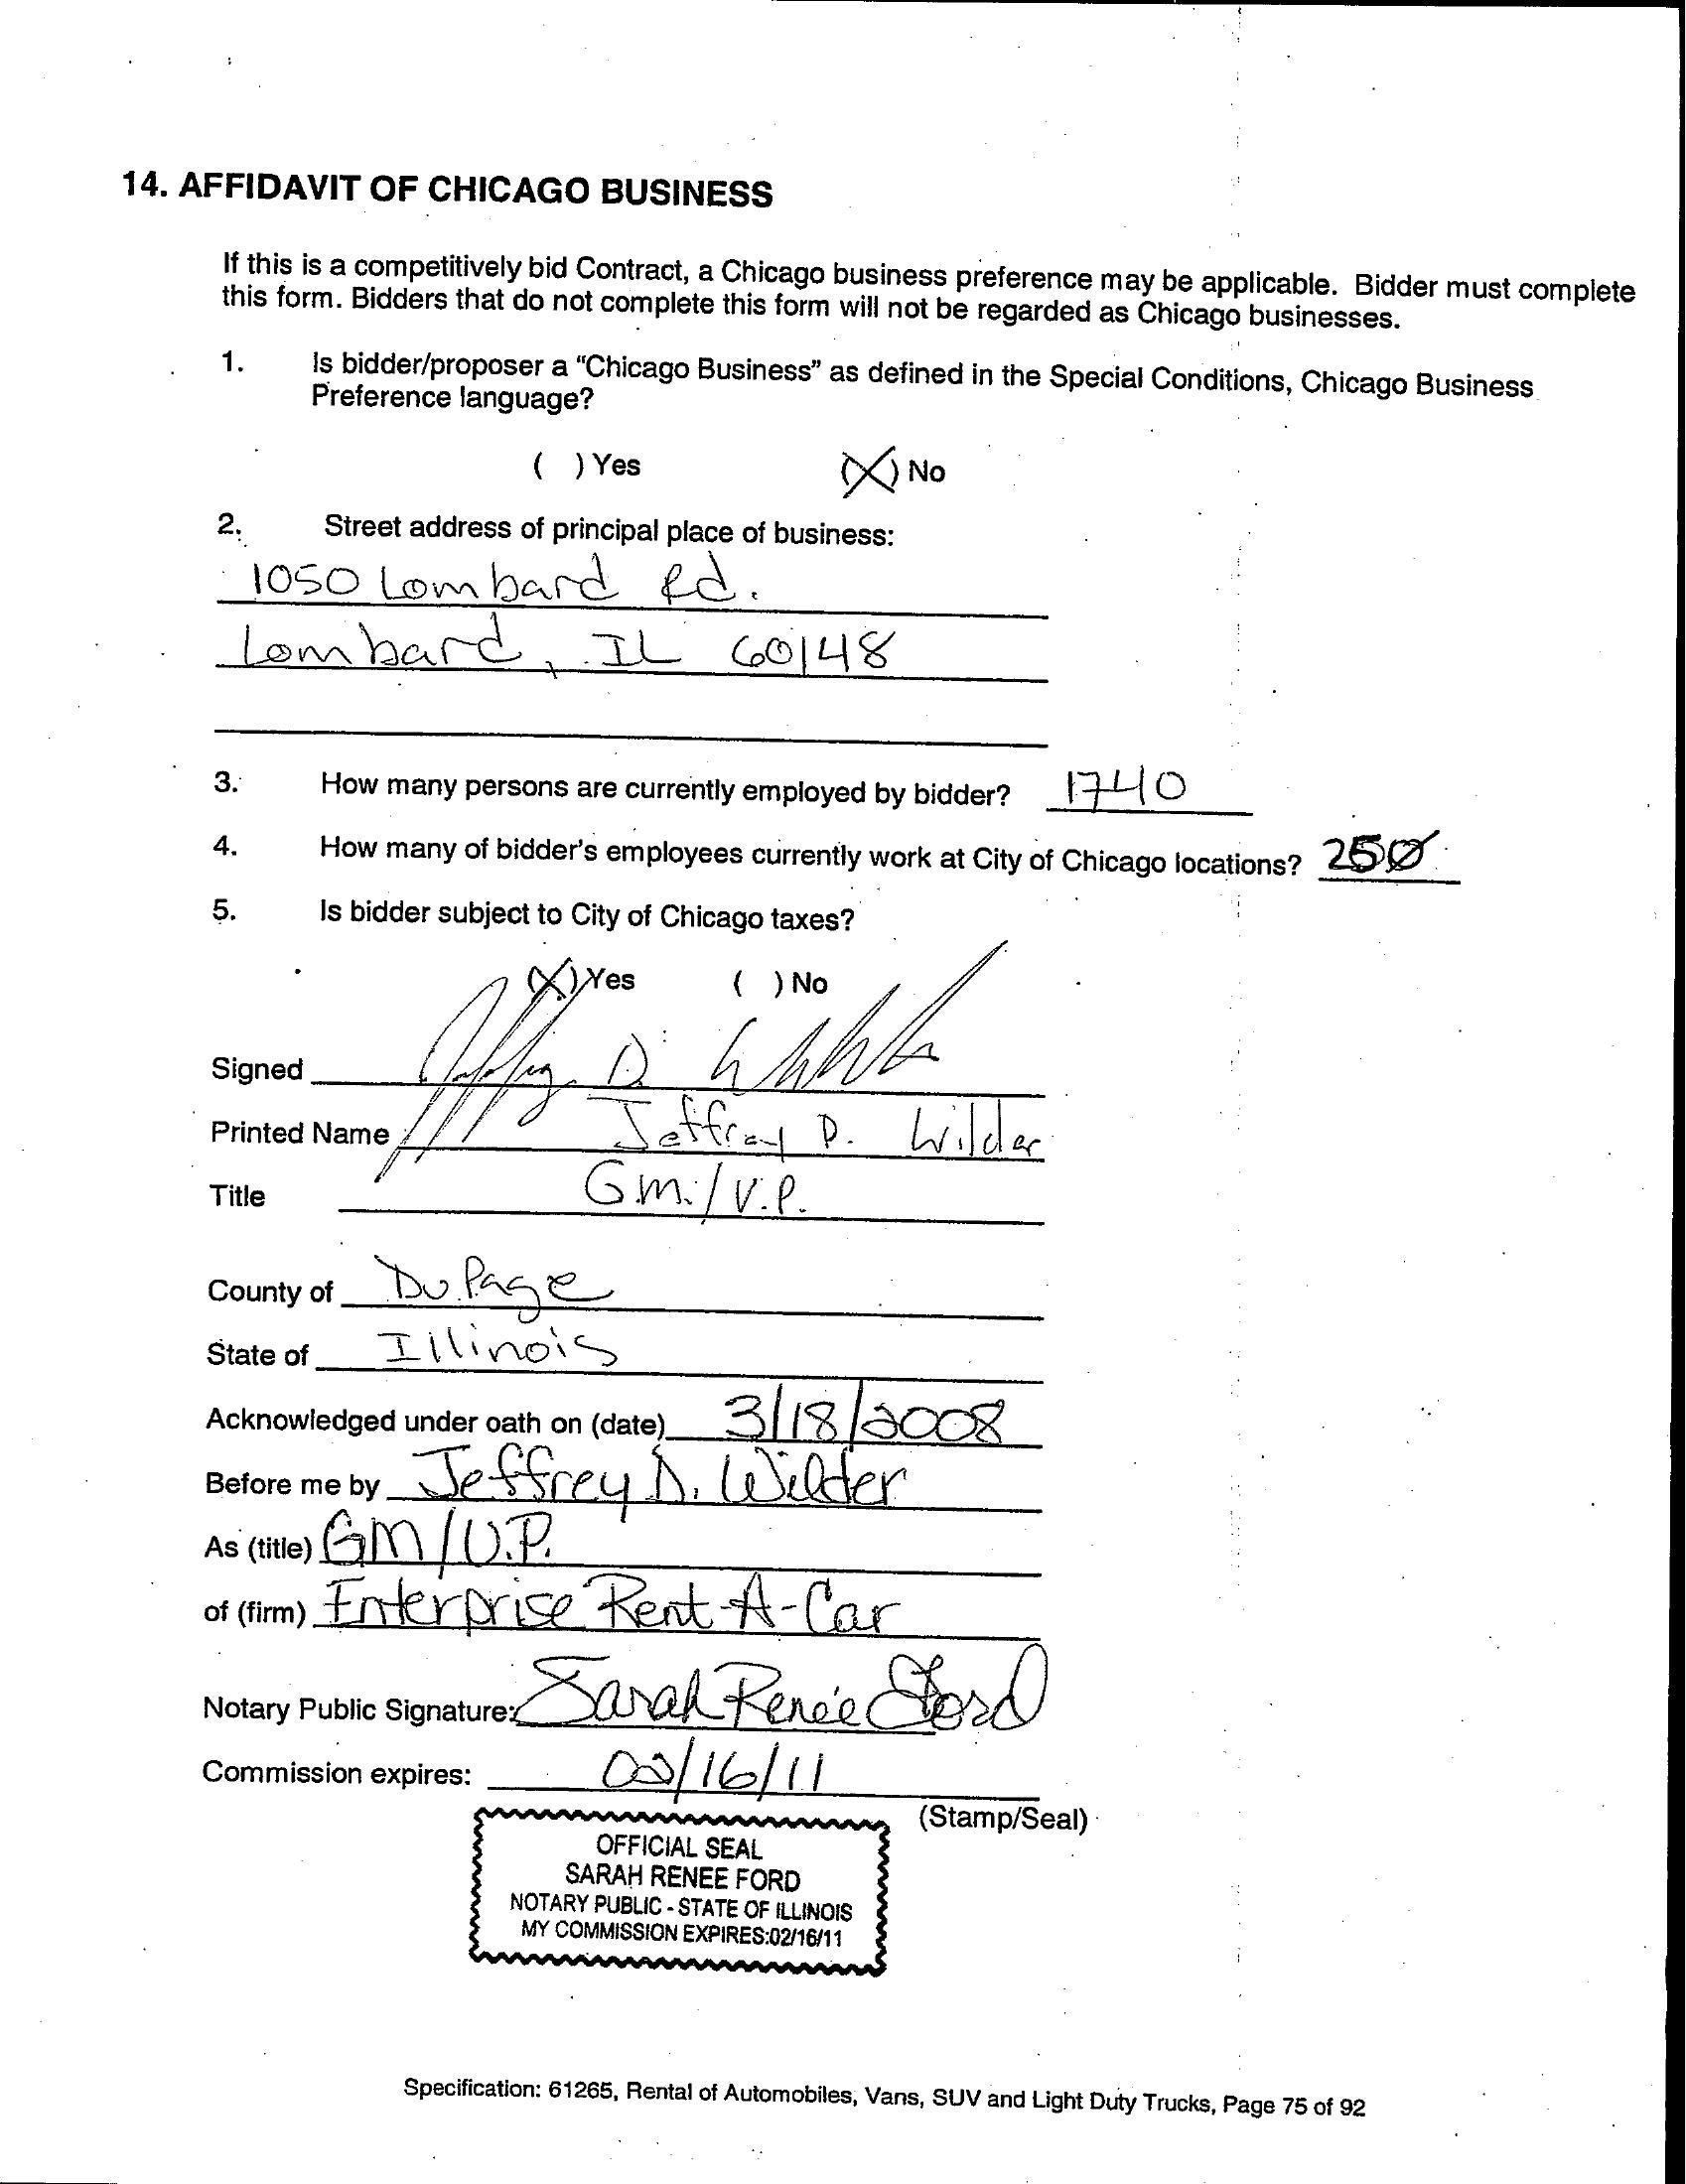 14. AFFIDAVIT OF CHICAGO BUSINESS
If this is a competitively bid Contract, a Chicago business preference may be applicable. Bidder must complete
this form. Bidders that do not complete this form will not be regarded as Chicago businesses.
1. Is bidder/proposer a “Chicago Business” as defined in the Special Conditions, Chicago Business
Preference language?
( ) Yes (X) No
2. Street address of principal place of business:
1050 Lombard Rd.
Lombard, IL 60148
3. How many persons are currently employed by bidder? 1740
4. How many of bidder's employees currently work at City of Chicago locations? 250
5. Is bidder subject to City of Chicago taxes?
(X) Yes ( ) No
Signed Jeffrey D. Wilder
Printed Name Jeffrey D. Wilder
Title G.M./V.P.
County of DuPage
State of Illinois
Acknowledged under oath on (date) 3/18/2008
Before me by Jeffrey D. Wilder
As (title) GM/V.P.
of (firm) Enterprise Rent-A-Car
Notary Public Signature: Sarah Renee Ford
Commission expires: 02/16/11
(Stamp/Seal)
OFFICIAL SEAL
SARAH RENEE FORD
NOTARY PUBLIC - STATE OF ILLINOIS
MY COMMISSION EXPIRES:02/16/11
Specification: 61265, Rental of Automobiles, Vans, SUV and Light Duty Trucks, Page 75 of 92